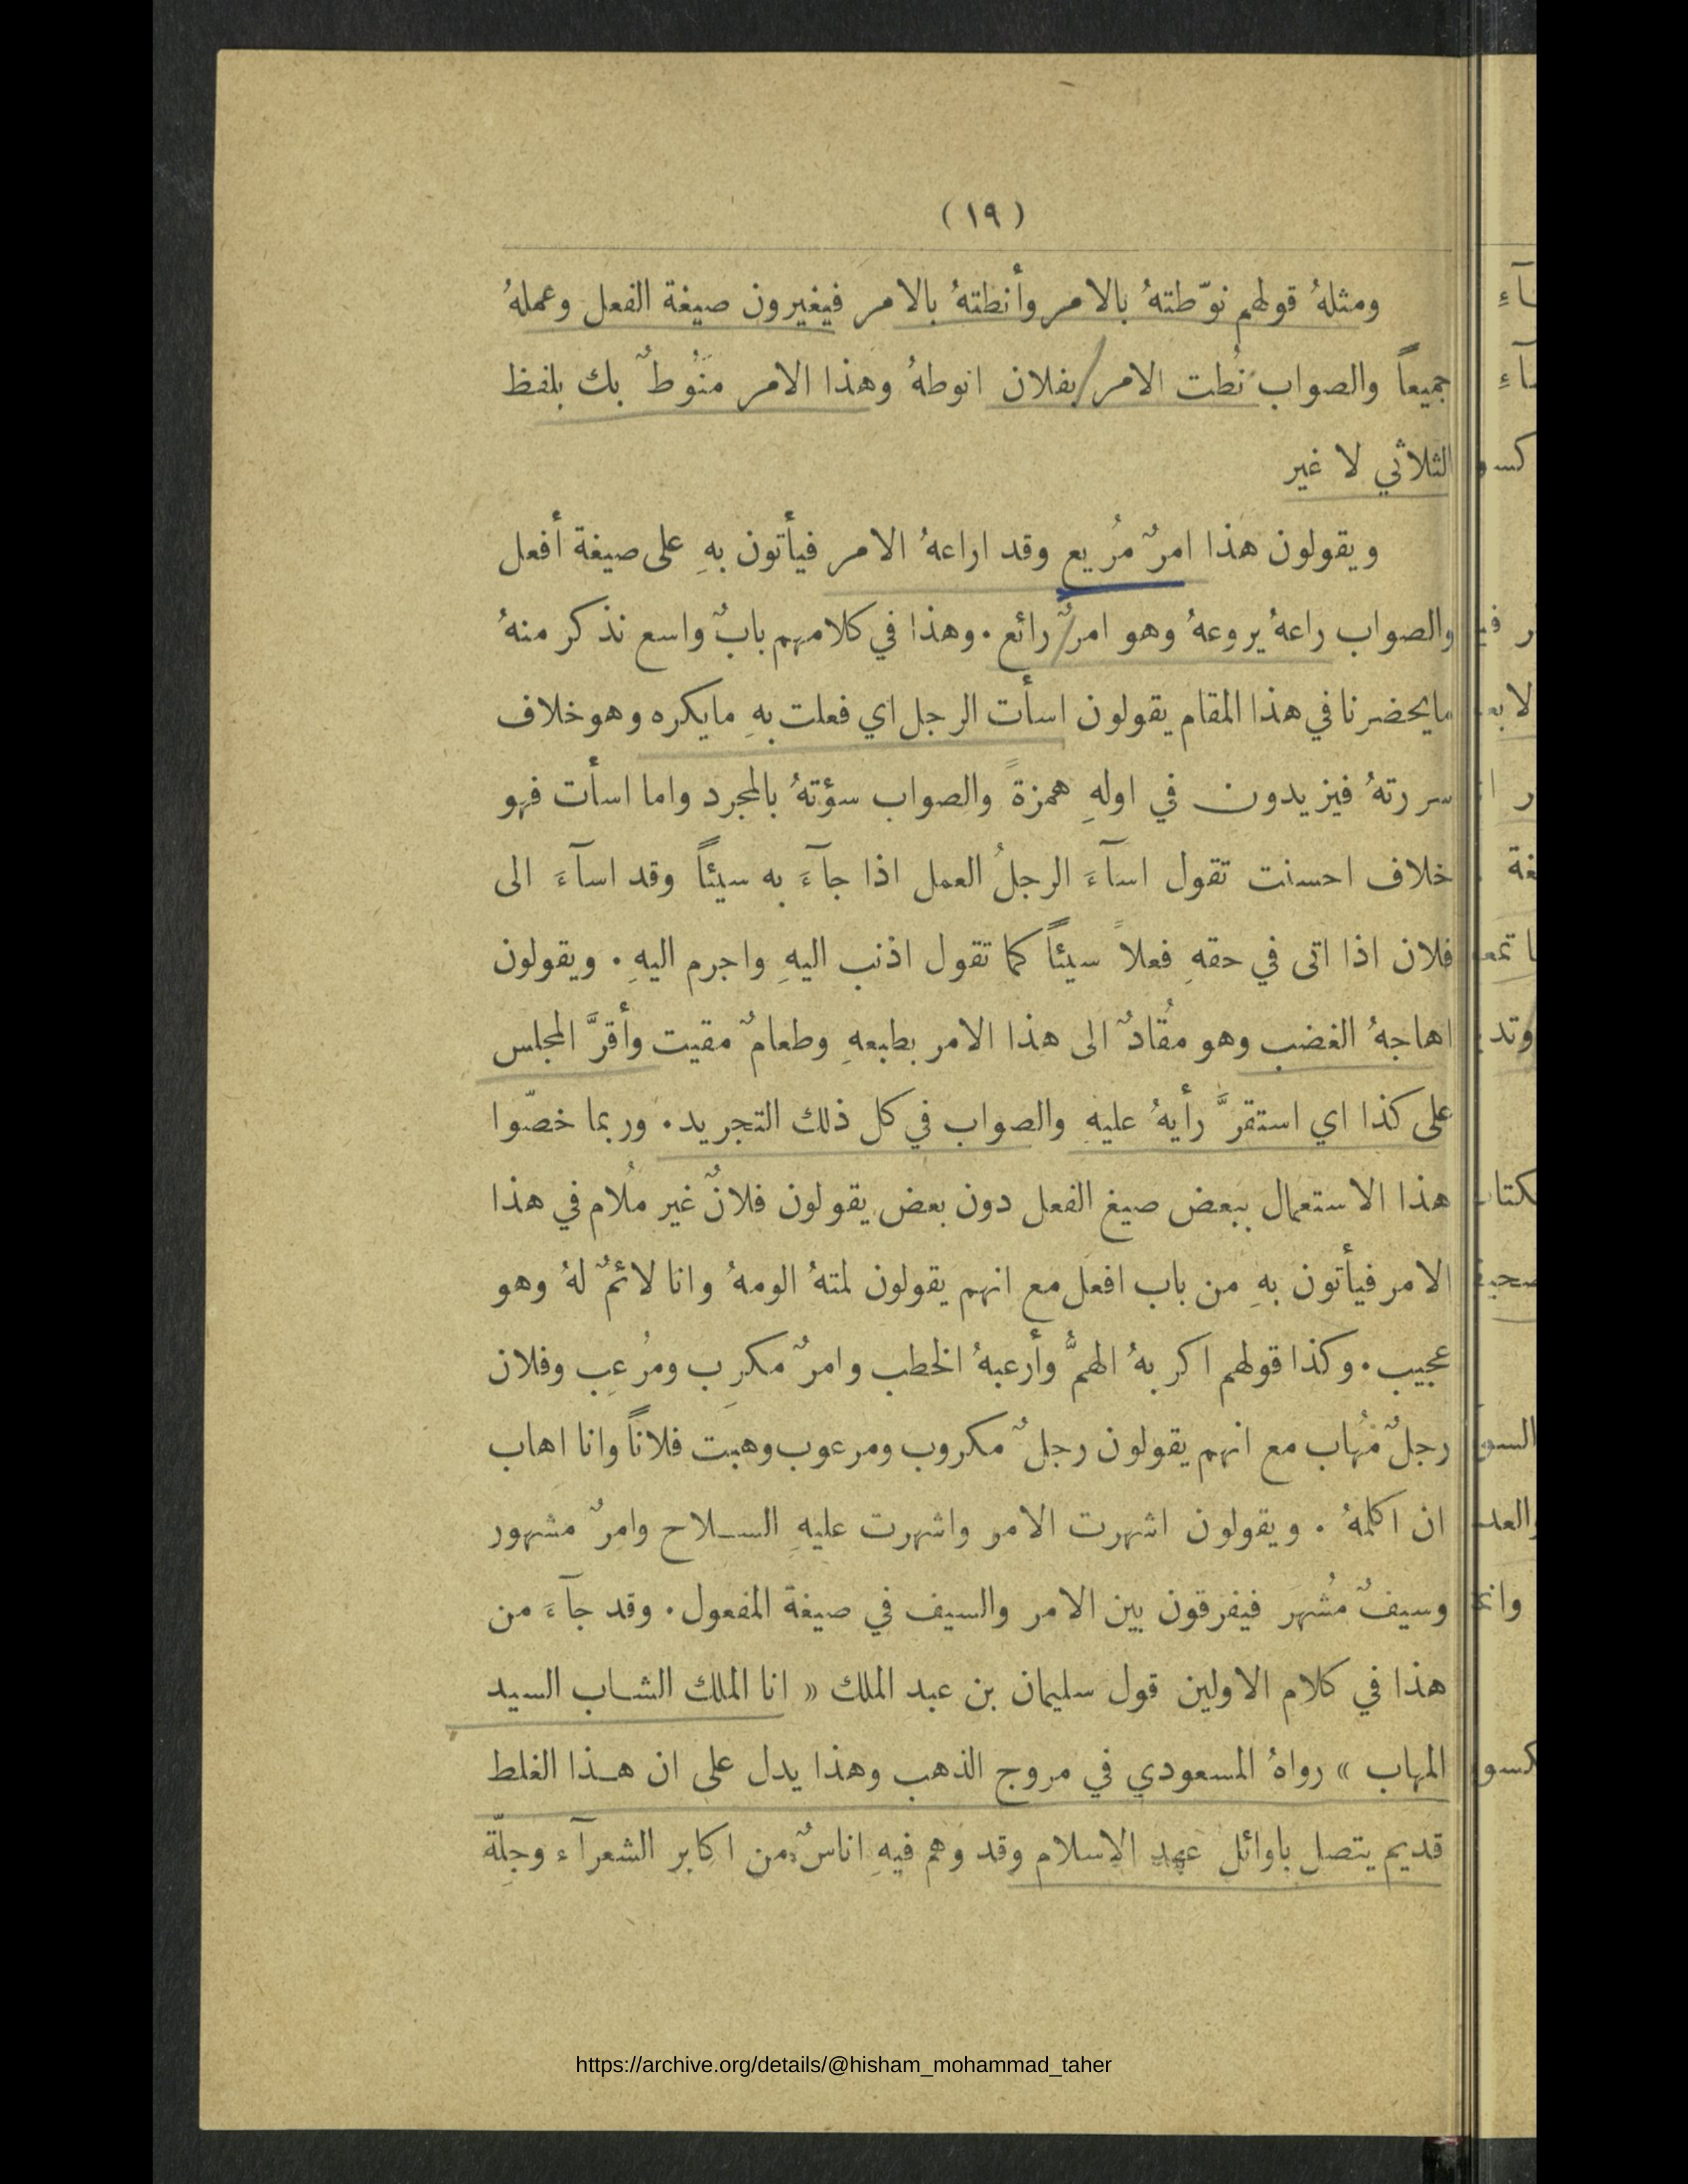 ( ١٩ )
ومثلهُ قولهم نوّطتهُ بالامر وأنطتهُ بالامر فيغيرون صيغة الفعل وعملهُ
جميعاً والصواب نُطت الامر بفلان انوطهُ وهذا الامر مَنُوطٌ بك بلفظ
الثلاثي لا غير
ويقولون هذا امرٌ مُريع وقد اراعهُ الامر فيأتون بهِ على صيغة أفعل
والصواب راعهُ يروعهُ وهو امرٌ رائع . وهذا في كلامهم بابٌ واسع نذكر منهُ
مايحضرنا في هذا المقام يقولون اسأت الرجل اي فعلت بهِ مايكره وهو خلاف
سررتهُ فيزيدون في اولهِ همزةً والصواب سؤتهُ بالمجرد واما اسأت فهو
خلاف احسنت تقول اسآءَ الرجلُ العمل اذا جآءَ به سيئاً وقد اسآءَ الى
فلان اذا اتى في حقهِ فعلاً سيئاً كما تقول اذنب اليهِ واجرم اليهِ . ويقولون
اهاجهُ الغضب وهو مُقادٌ الى هذا الامر بطبعهِ وطعامٌ مقيت وأقرَّ المجلس
على كذا اي استقرَّ رأيهُ عليهِ والصواب في كل ذلك التجريد . وربما خصّوا
هذا الاستعمال ببعض صيغ الفعل دون بعض يقولون فلانٌ غير مُلام في هذا
الامر فيأتون بهِ من باب افعل مع انهم يقولون لمتهُ الومهُ وانا لائمٌ لهُ وهو
عجيب . وكذا قولهم اكربهُ الهمُّ وأرعبهُ الخطب وامرٌ مكرِب ومُرعِب وفلان
رجلٌ مُهاب مع انهم يقولون رجلٌ مكروب ومرعوب وهبت فلاناً وانا اهاب
ان اكلمهُ . ويقولون اشهرت الامر واشهرت عليهِ السلاح وامرٌ مشهور
وسيفٌ مُشهر فيفرقون بين الامر والسيف في صيغة المفعول . وقد جآءَ من
هذا في كلام الاولين قول سليمان بن عبد الملك « انا الملك الشاب السيد
المهاب » رواهُ المسعودي في مروج الذهب وهذا يدل على ان هذا الغلط
قديم يتصل باوائل عهد الاسلام وقد وهم فيهِ اناسٌ من اكابر الشعرآء وجِلّة
https://archive.org/details/@hisham_mohammad_taher